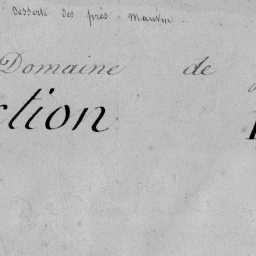 Desserte des prés Mauvin
Domaine de
ction